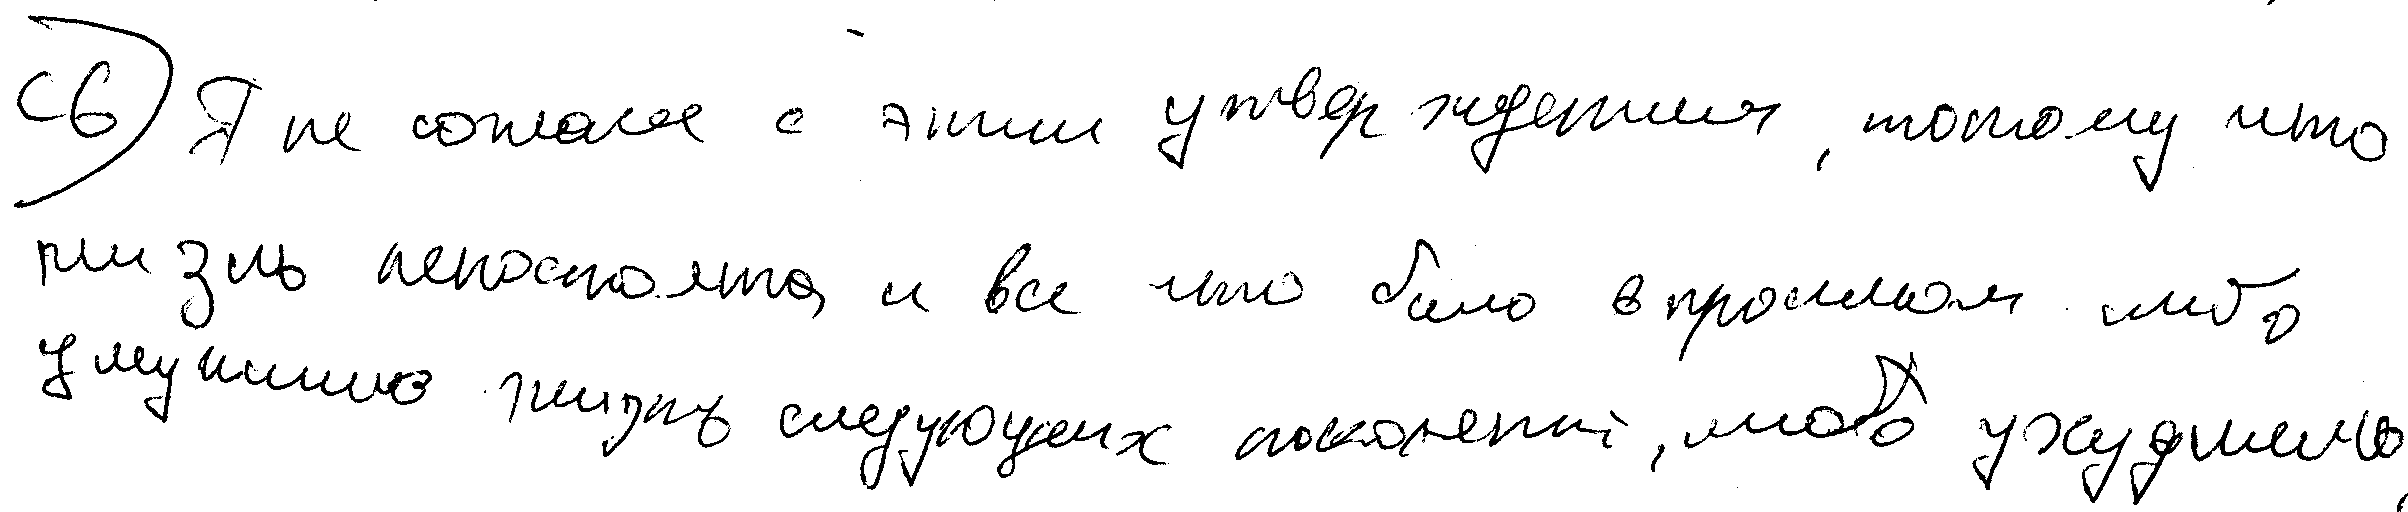 С6) Я не согласен с этим утверждением, потому что
жизнь непостоянна и все что было в прошлом либо
улучшило жизнь следующих поколений, либо ухудшило,